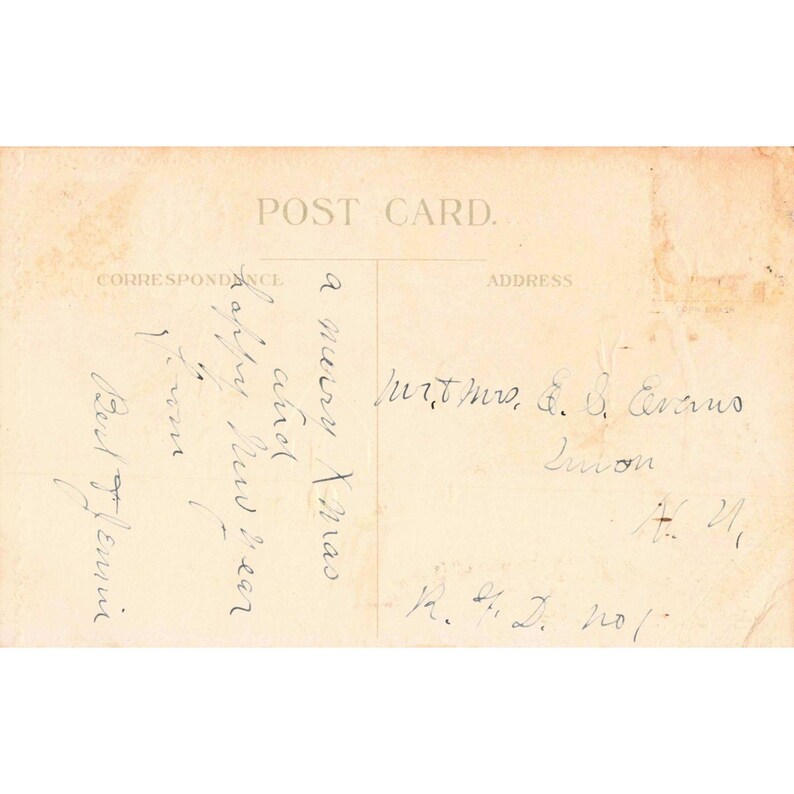 POST CARD.
CORRESPONDENCE
ADDRESS
a merry Xmas
and
happy New Year
from
Bert & Jennie
Mr. & Mrs. E. S. Evans
Union
N. Y,
R. F. D. no 1